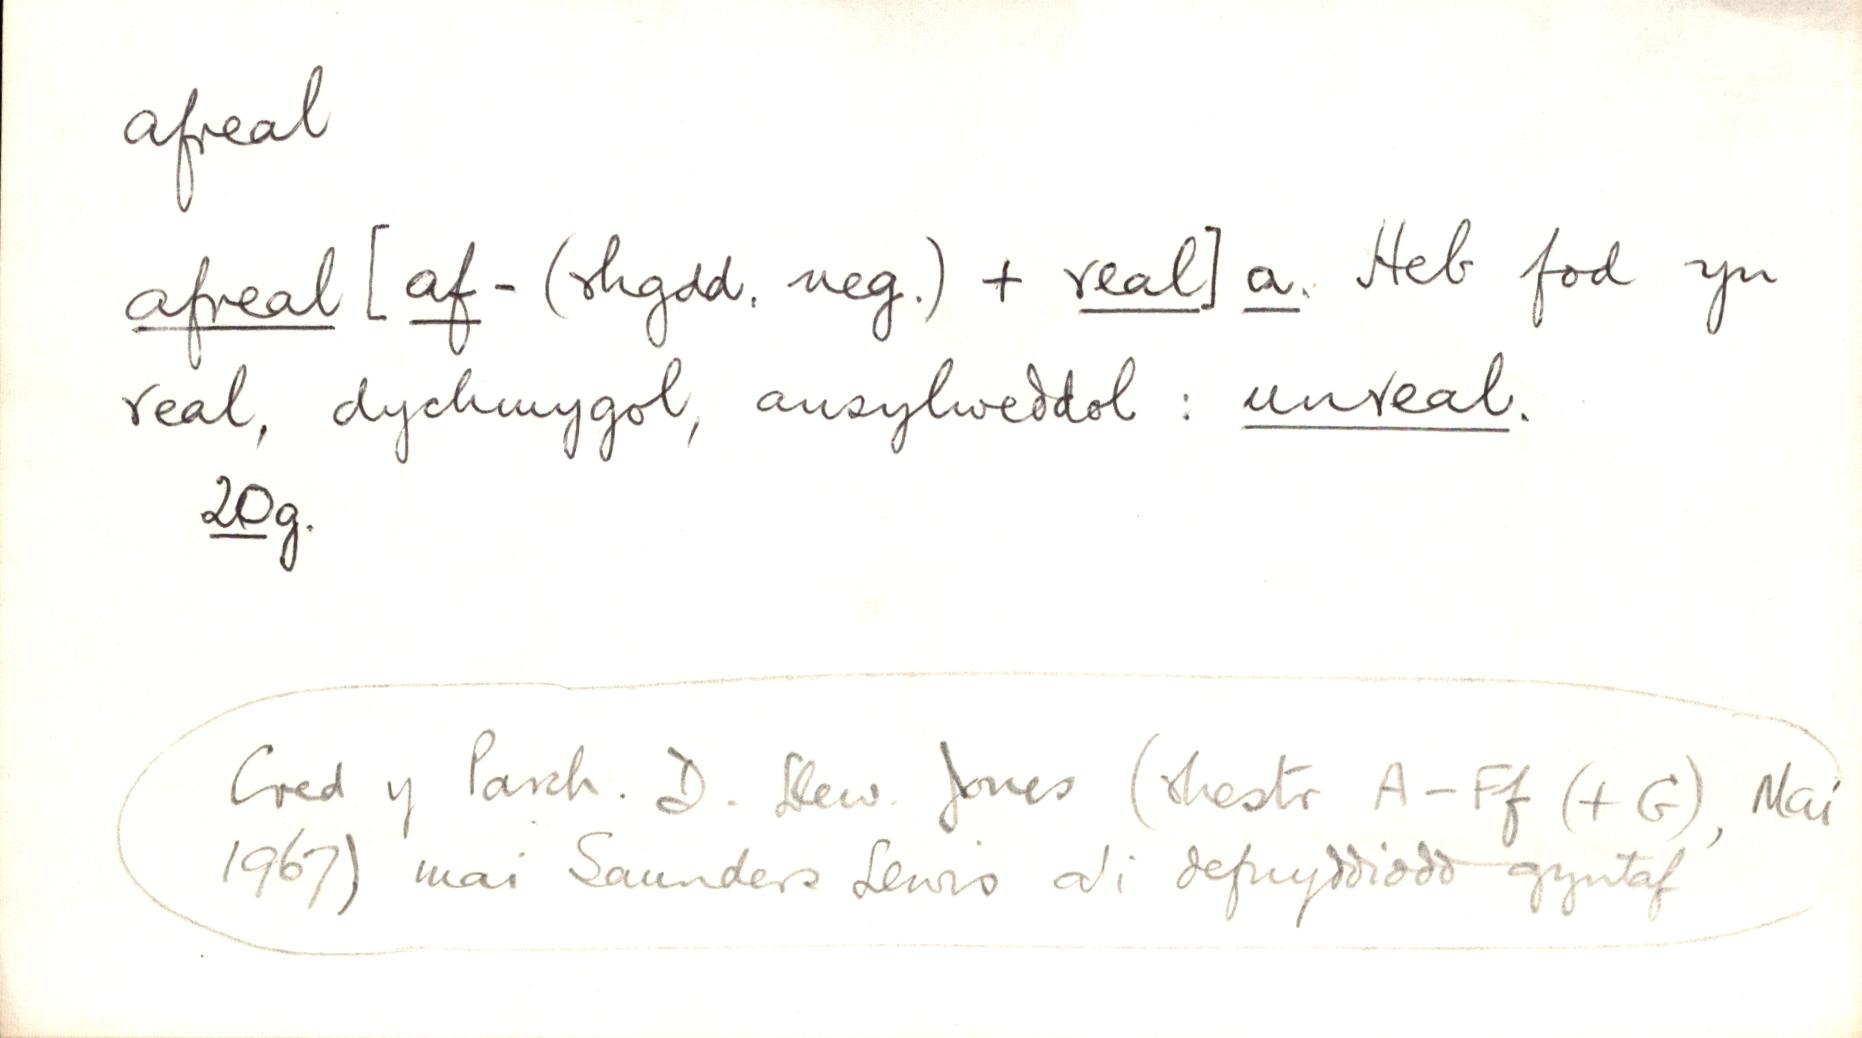 afreal
afreal [af- (rhgdd. neg.) + real] a. Heb fod yn
real, dychmygol, ansylweddol : unreal.
20g.
Cred y Parch. D. Llew. Jones (rhestr A–Ff (+ G), Mai
1967) mai Saunders Lewis a'i defnyddiodd gyntaf